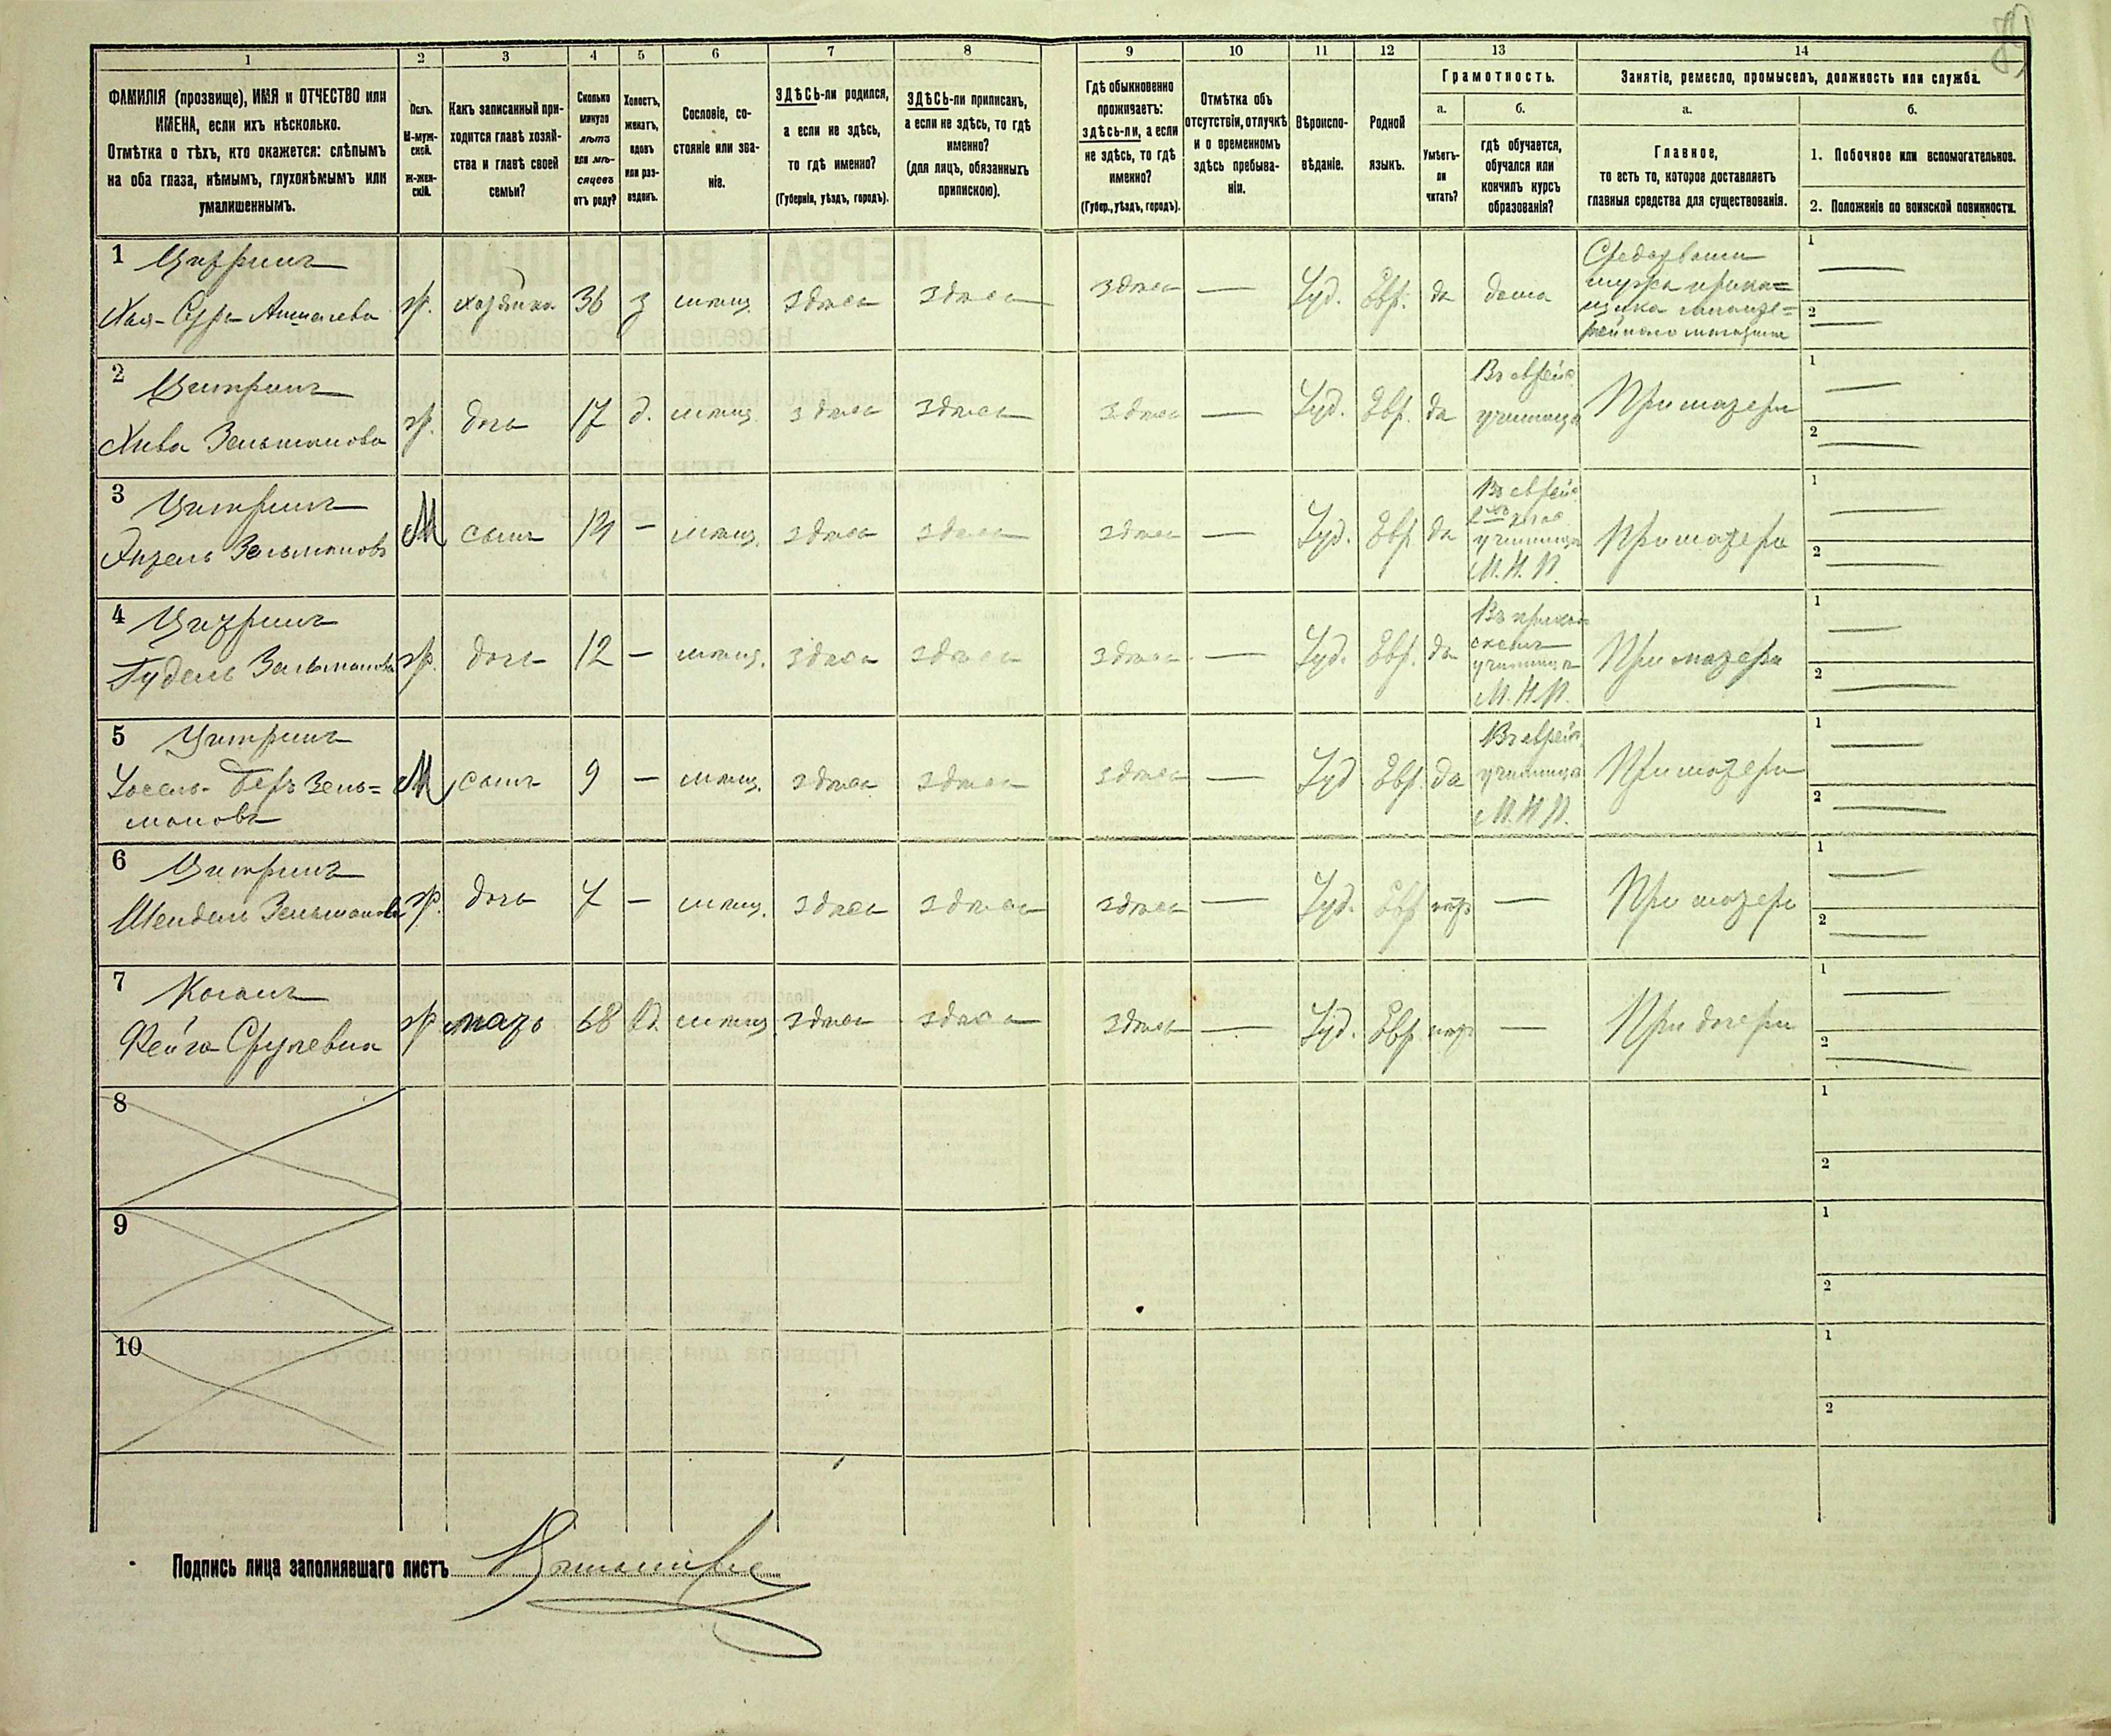 1 2 3 4 5 6 7 8 9 10 11 12 13 14
ФАМИЛІЯ (прозвище), ИМЯ и ОТЧЕСТВО или
ИМЕНА, если ихъ нѣсколько.
Отмѣтка о тѣхъ, кто окажется: слѣпымъ
на оба глаза, нѣмымъ, глухонѣмымъ или
умалишеннымъ.
Полъ.
М-муж-
ской.
Ж-жен-
скій.
Какъ записанный при-
ходится главѣ хозяй-
ства и главѣ своей
семьи?
Сколько
минуло
лѣтъ
или мѣ-
сяцевъ
отъ роду?
Холостъ,
женатъ,
вдовъ
или раз-
веденъ.
Сословіе, со-
стояніе или зва-
ніе.
ЗДѢСЬ-ли родился,
а если не здѣсь,
то гдѣ именно?
(Губернія, уѣздъ, городъ).
ЗДѢСЬ-ли приписанъ,
а если не здѣсь, то гдѣ
именно?
(для лицъ, обязанныхъ
припискою).
Гдѣ обыкновенно
проживаетъ:
здѣсь-ли, а если
не здѣсь, то гдѣ
именно?
(Губер., уѣздъ, городъ).
Отмѣтка объ
отсутствіи, отлучкѣ
и о временномъ
здѣсь пребыва-
ніи.
Вѣроиспо-
вѣданіе.
Родной
языкъ.
Грамотность.
а.
Умѣетъ-
ли
читать?
б.
гдѣ обучается,
обучался или
кончилъ курсъ
образованія?
Занятіе, ремесло, промыселъ, должность или служба.
а.
Главное,
то есть то, которое доставляетъ
главныя средства для существованія.
б.
1. Побочное или вспомогательное.
2. Положеніе по воинской повинности.
1 Цитринъ
Хая-Сура Аншелева ж. хозяйка 36 з мѣщ. здѣсь здѣсь здѣсь — Іуд. Евр. да дома
Средствами
мужа прика=
щика
магазина
1 —
2 —
2 Цитринъ
Хива Зельманова ж. дочь 17 д. мѣщ. здѣсь здѣсь здѣсь — Іуд. Евр. да
Въ еврейс.
училищѣ
При матери
1 —
2 —
3 Цитринъ
Зельмановъ М сынъ 14 — мѣщ. здѣсь здѣсь здѣсь — Іуд. Евр. да
Въ еврейс.
училищѣ
М.Н.П.
При матери
1 —
2 —
4 Цитринъ
Гудель Зельманова ж. дочь 12 — мѣщ. здѣсь здѣсь здѣсь — Іуд. Евр. да
Въ приход=
скомъ
училищѣ
М.Н.П.
При матери
1 —
2 —
5 Цитринъ
Іосель-Беръ Зель=
мановъ
М сынъ 9 — мѣщ. здѣсь здѣсь здѣсь — Іуд. Евр. да
Въ еврейс.
училищѣ
М.Н.П.
При матери
1 —
2 —
6 Цитринъ
Шендель Зельманова ж. дочь 7 — мѣщ. здѣсь здѣсь здѣсь — Іуд. Евр. нѣтъ —
При матери
1 —
2 —
7 Коганъ
Фейга Срулевна ж мать 68 в. мѣщ. здѣсь здѣсь здѣсь — Іуд. Евр. нѣтъ —
При дочери
1 —
2 —
8
1
2
9
1
2
10
1
2
Подпись лица заполнявшаго листъ